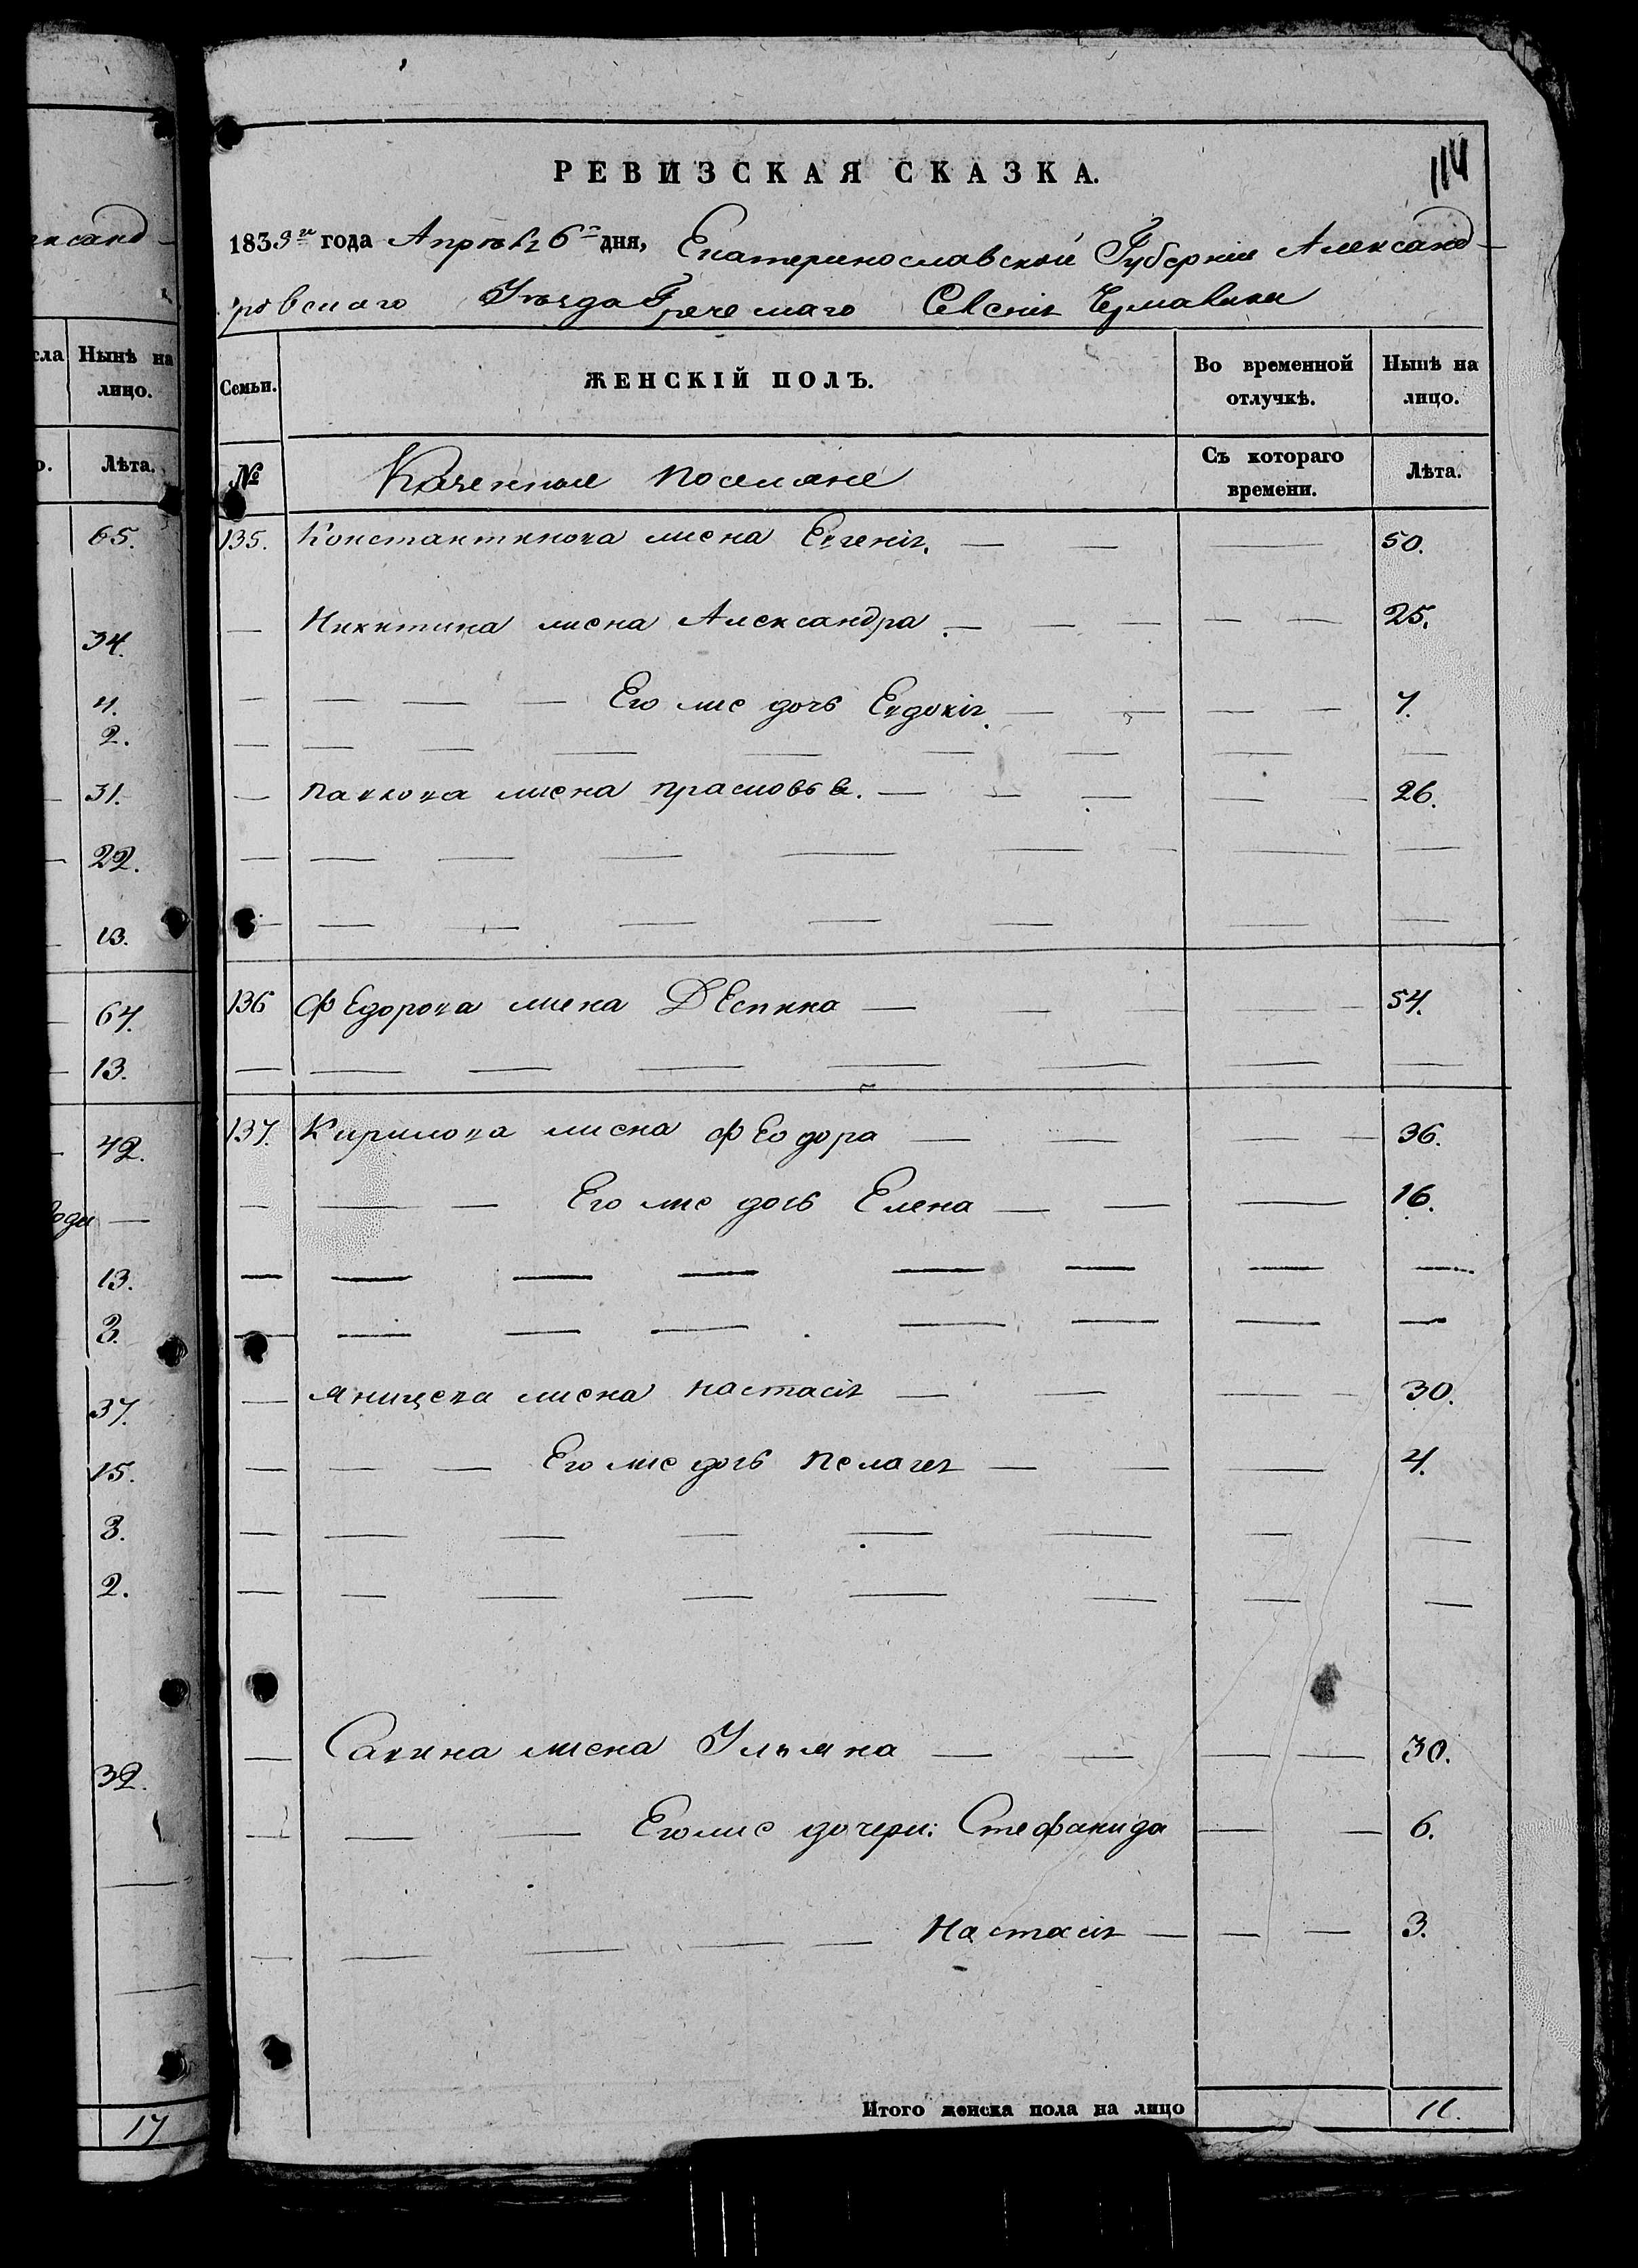 ксанд
сла Нынѣ на
лицо.
о. Лѣта.
65.
34.
4.
2.
31.
22.
13.
67.
13.
42.
13.
3.
37.
15.
3.
2.
32.
17
114
РЕВИЗСКАЯ СКАЗКА.
1835го года Апрѣля 6го дня, Екатеринославской Губерніи Александ-
ровскаго Уѣзда Греческаго Селенія Чермалыка
Семьи. ЖЕНСКІЙ ПОЛЪ. Во временной отлучкѣ. Нынѣ на лицо.
№ Казенные поселяне Съ котораго времени. Лѣта.
135. Константинова жена Евгенія. — — — 50.
— Никитина жена Александра. — — — — — 25.
— — — — Его же дочь Евдокія. — — — — 7.
— — — — — — — — —
— Павлова жена Прасковья. — — — — — 26.
— — — — — — — — —
— — — — — — — —
136 Федорова жена Деспина — — — — — 54.
— — — — — — — —
137. Кирилова жена Феодора — — — — 36.
— — — Его же дочь Елена — — — 16.
— — — — — — — —
— — — — — — — —
— жена Настасія — — — — 30.
— — — Его же дочь Пелагея — — — 4.
— — — — — — — —
— — — — — — — —
— Савина жена Ульяна — — — — 30.
— — — Его же дочери: Стефанида — — 6.
— — — — — Настасія — — — 3.
Итого женска пола на лицо 11.